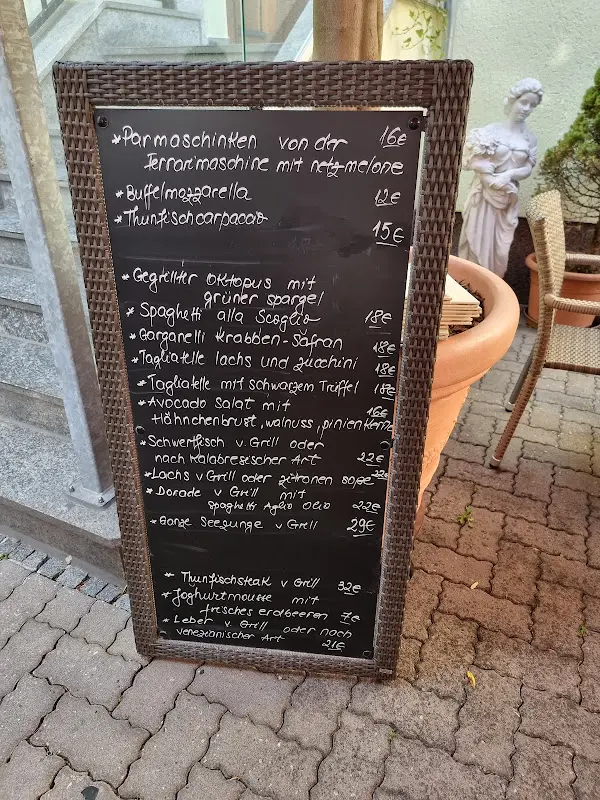 * Parmaschinken von der 16€
Ferrarimaschine mit netzmelone
* Buffelmozzarella 12€
* Thunfischcarpaccio 15€
* Gegrillter Oktopus mit
grüner spargel
* Spaghetti alla Scoglio 18€
* Garganelli Krabben-Safran 18€
* Tagliatelle lachs und zucchini 18€
* Tagliatelle mit schwarzem Trüffel 18€
* Avocado Salat mit 16€
Hähnchenbrust, walnuss, pinienkerne
* Schwertfisch v Grill oder
nach Kalabresischer Art 22€
* Lachs v Grill oder zitronen soße 22€
* Dorade v Grill mit
spaghetti Aglio Olio 22€
* Ganze Seezunge v Grill 29€
* Thunfischsteak v Grill 32€
* Joghurtmousse mit
frisches erdbeeren 7€
* Leber v. Grill oder nach
venezianischer Art 21€